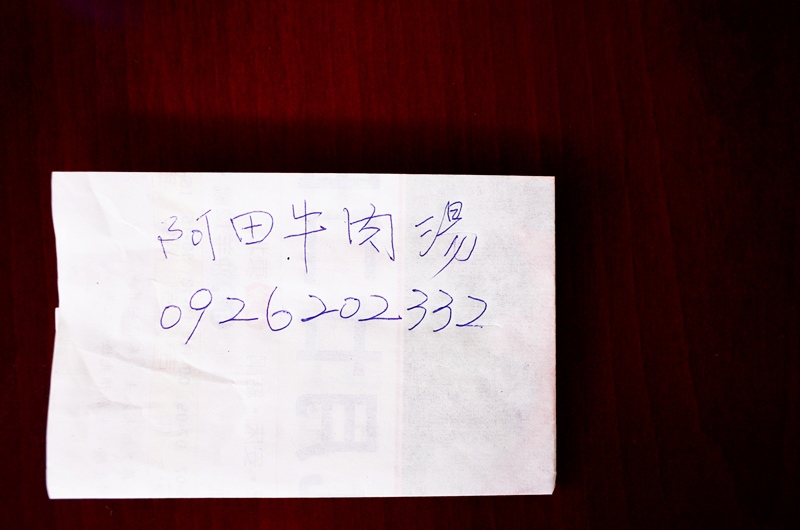 阿田牛肉湯
0926202332